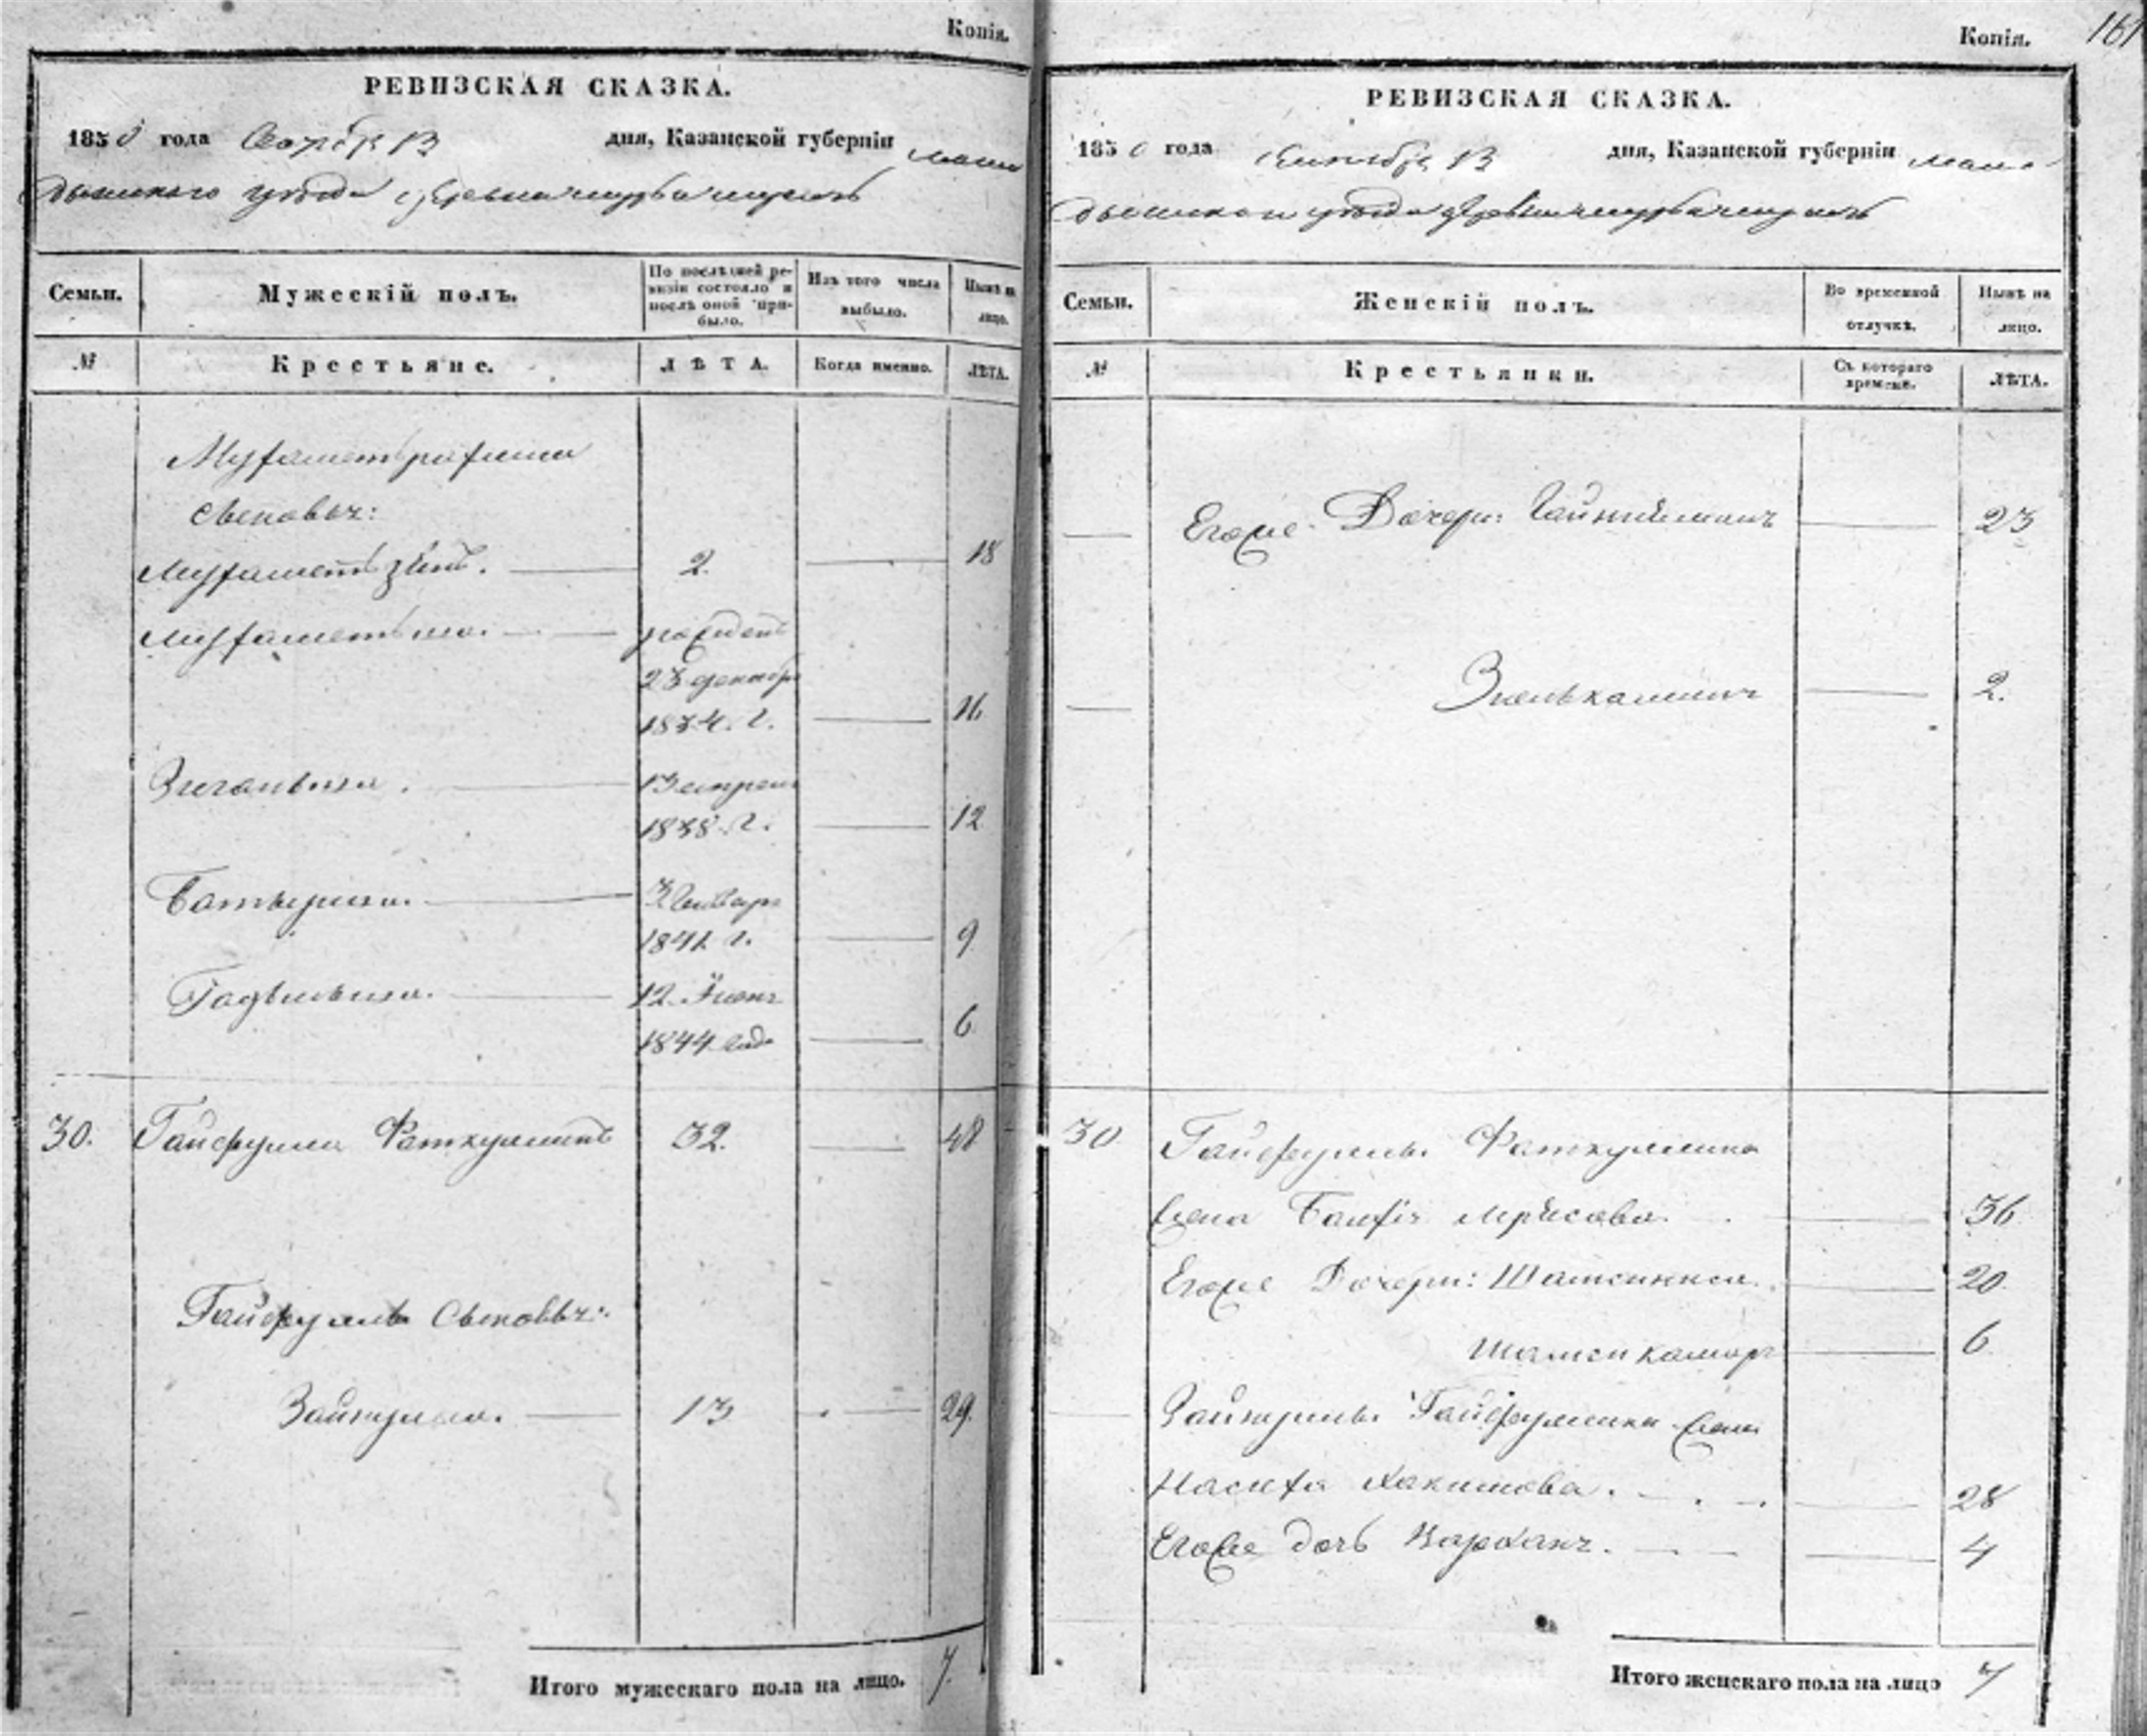 Копія.
РЕВИЗСКАЯ СКАЗКА.
1850 года Октября 13 дня, Казанской губерніи мама
дышскаго уѣзда деревни
Семьи. Мужескій полъ. По послѣдней ре-
визіи состояло и
послѣ оной при-
было. Изъ того числа
выбыло. Нынѣ на
лицо.
№ Крестьяне. ЛѢТА. Когда именно. ЛѢТА.
Мухаметърахима
сыновья:
Мухаметъ зянъ. 2. 18
Мухаметъша. рожденъ
23 декабря
1834. г. 16
Зиганьша. 13 апреля
1838. г. 12
Батырша. 3 Генваря
1841 г. 9
Гадѣльша. 12 Июня
1844 года 6
30. Гайфулла Фаткуллинъ 32. 48
Гайфуллы Сыновья:
Зайнулла. 13 29.
Итого мужескаго пола на лицо. 7.
Копія. 161
РЕВИЗСКАЯ СКАЗКА.
1850 года Октября 13 дня, Казанской губерніи мама
дышскаго уѣзда деревни
Семьи. Женскій полъ. Во временной
отлучкѣ. Нынѣ на
лицо.
№ Крестьянки. Съ котораго
времени. ЛѢТА.
Егоже Дочери: 23
2.
30 Гайфуллы Фаткуллина
жена 36
Егоже Дочери: 20
Шамси камаръ 6
Зайнуллы Гайфуллина жена
Насиха Хакимова. 28
Егоже дочь 4
Итого женскаго пола на лицо 7